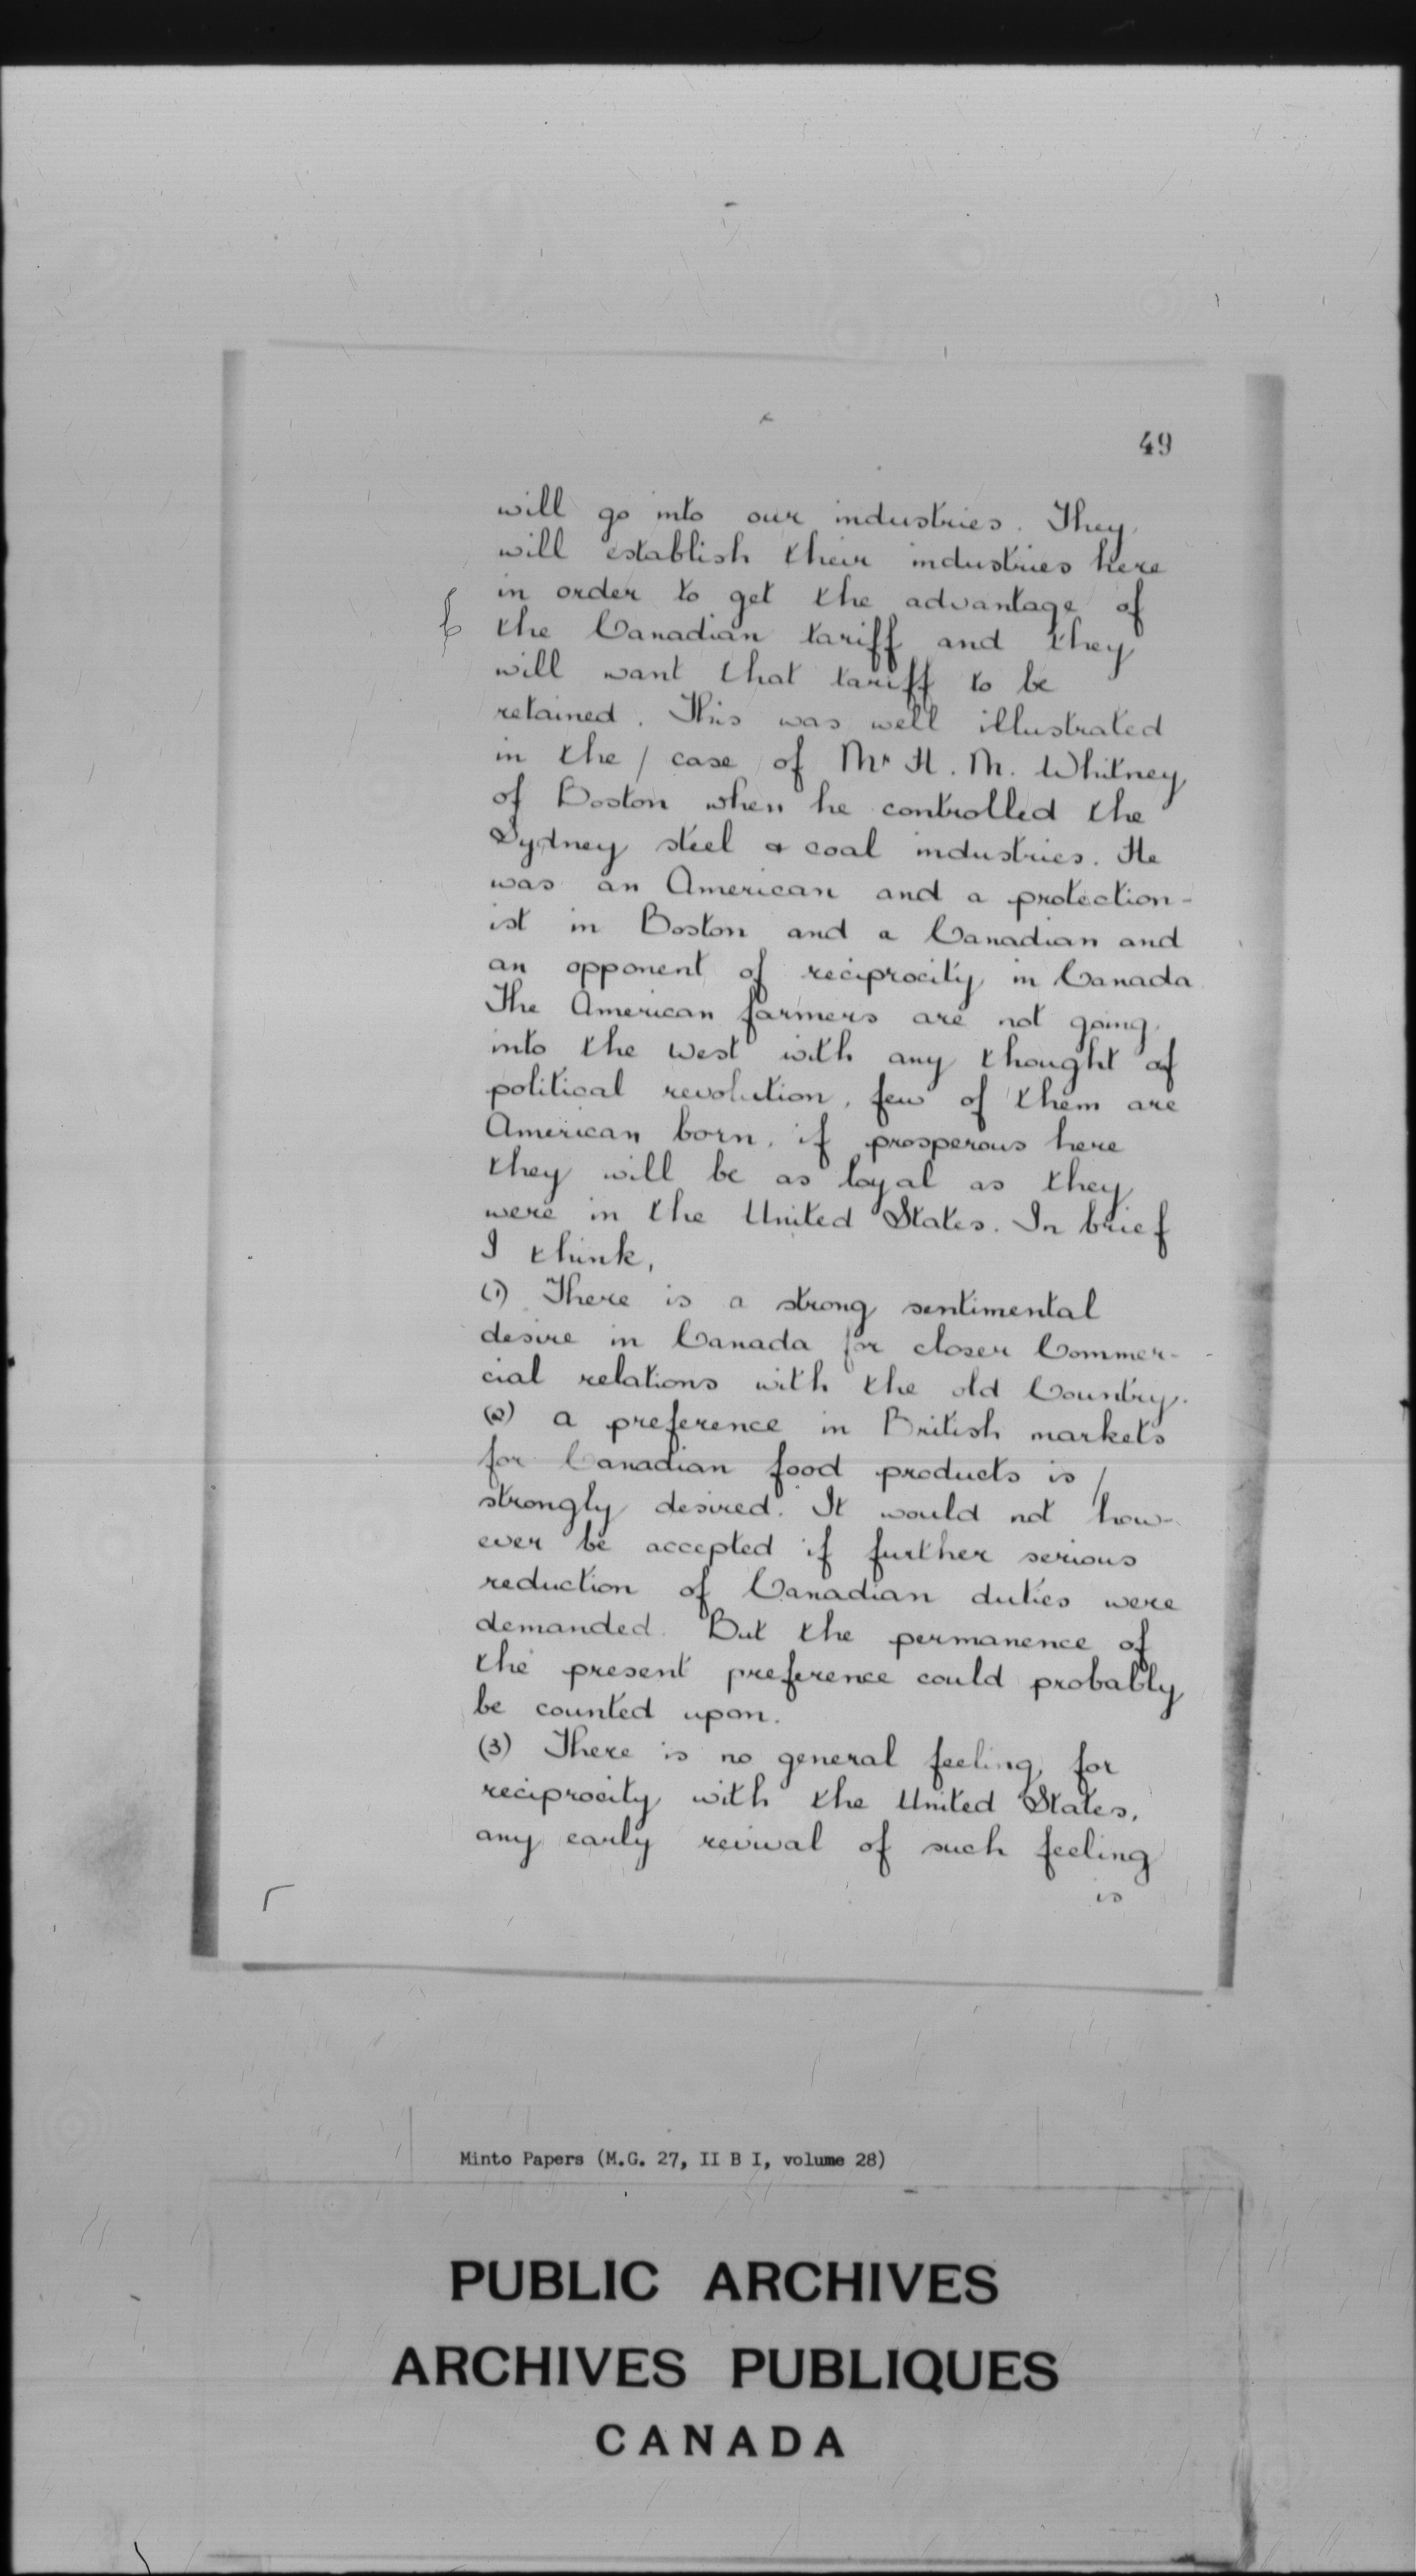 49
will go into our industries. They
will establish their industries here
in order to get the advantage of
the Canadian tariff and they
will want that tariff to be
retained. This was well illustrated
in the / case of Mr H. M. Whitney
of Boston when he controlled the
Sydney steel & coal industries. He
was an American and a protection-
ist in Boston and a Canadian and
an opponent of reciprocity in Canada
The American farmers are not going
into the West with any thought of
political revolution, few of them are
American born, if prosperous here
they will be as loyal as they
were in the United States. In brief
I think,
(1) There is a strong sentimental
desire in Canada for closer Commer-
cial relations with the old Country.
(2) a preference in British markets
for Canadian food products is /
strongly desired. It would not how-
ever be accepted if further serious
reduction of Canadian duties were
demanded. But the permanence of
the present preference could probably
be counted upon.
(3) There is no general feeling for
reciprocity with the United States,
any early revival of such feeling
is
Minto Papers (M.G. 27, II B I, volume 28)
PUBLIC ARCHIVES
ARCHIVES PUBLIQUES
CANADA